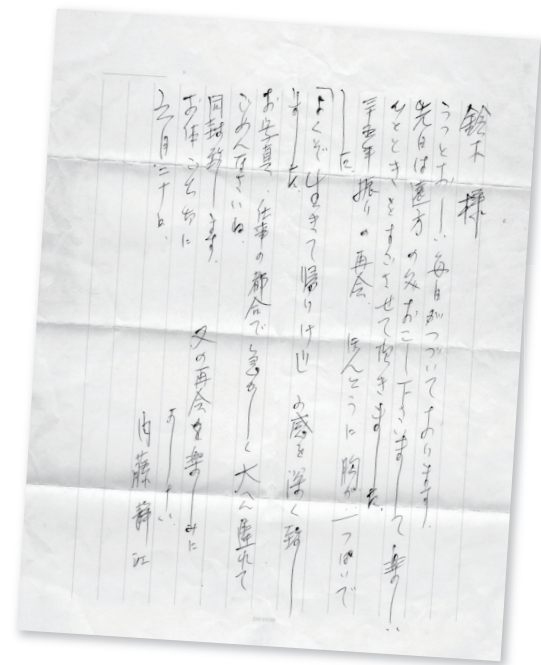 鈴木様
うっとおしい毎日がつづいております。
先日は遠方の処お こし下さいまして 楽しい
ひとときをすごさせて頂きました。
三十五年振りの再会 ほんとうに胸が一っぱいで
した。
「よくぞ生きて帰りけむ」の感を深く致し
ました。
お写真、仕事の都合で急がしく大へん遅れて
ごめんなさいね。
同封致します。
お体ご大切に
又の再会を楽しみに
ましょう。
六月二十日、
内藤静江